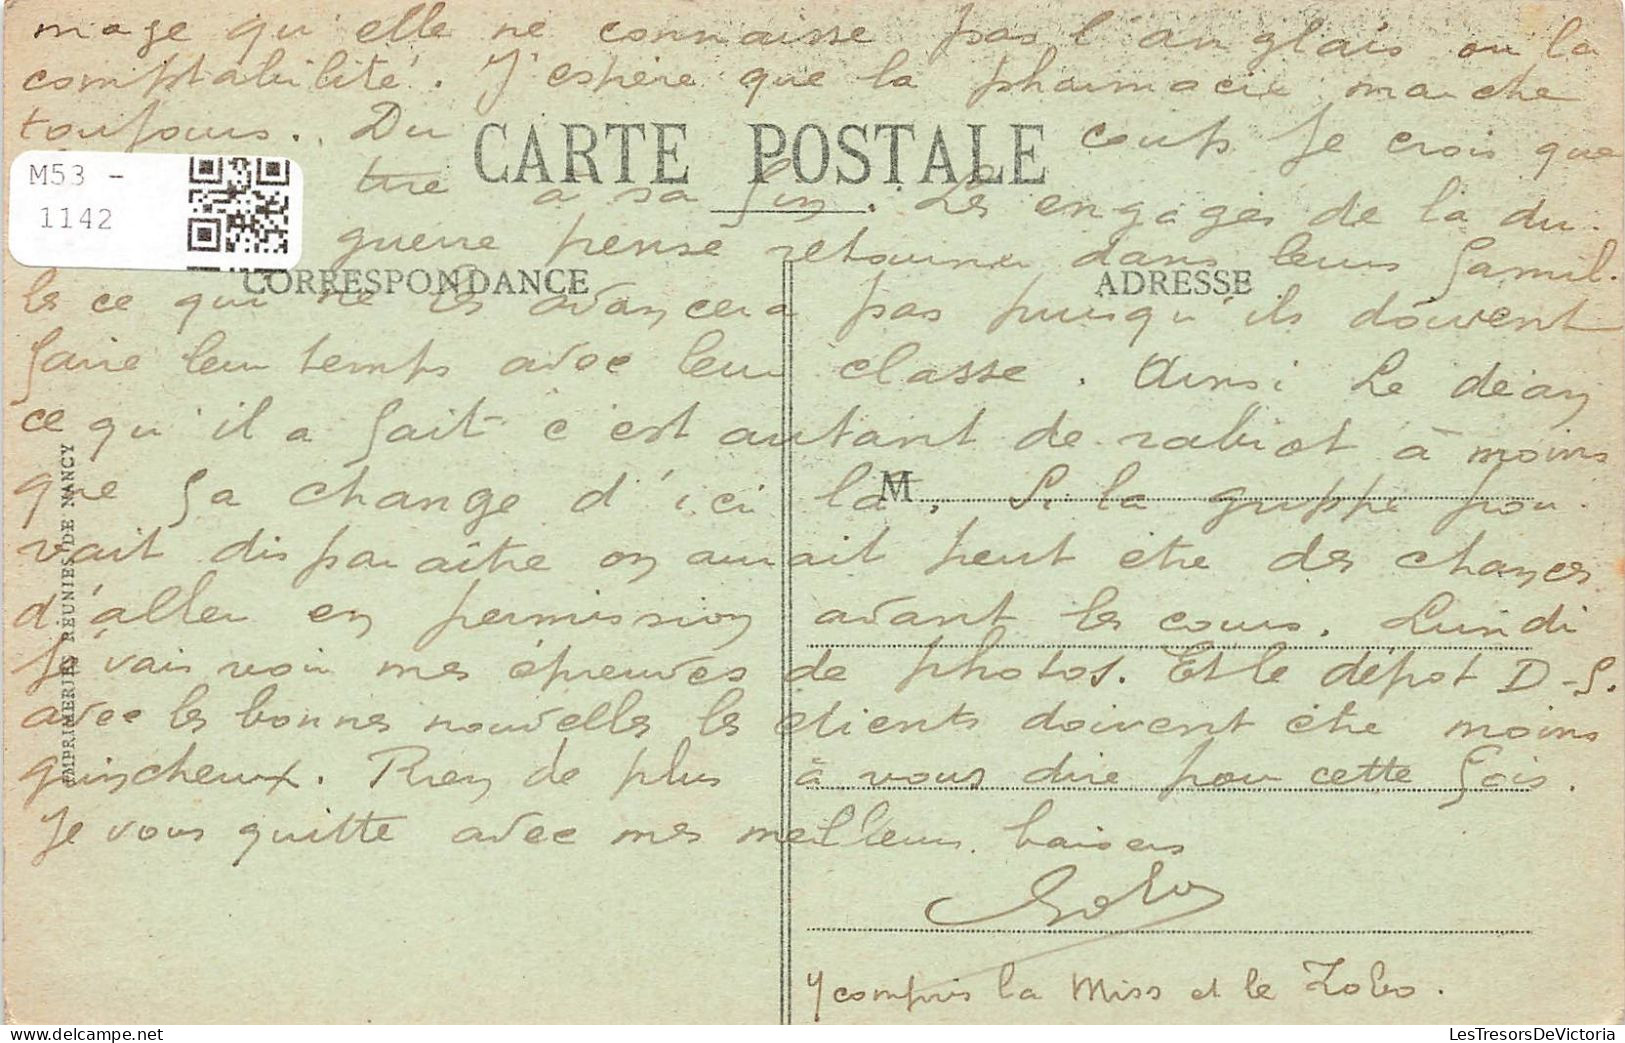 mage qu'elle ne connaisse pas l'anglais ou la
comptabilité. J'espère que la pharmacie marche
toujours. Du coup je crois que
CARTE POSTALE
M53 -
1142
tire à sa fin. Les engagés de la du-
guerre pense retourner dans leurs famil-
CORRESPONDANCE
ADRESSE
les ce qui ne les avancera pas puisqu'ils doivent
faire leur temps avec leur classe. Ainsi le déan
ce qu'il a fait c'est autant de rabiot à moins
que ça change d'ici là. Si la grippe pou-
M
vait disparaître on aurait peut être des chances
d'aller en permission avant les cours. Lundi
je vais voir mes épreuves de photos. Et le dépot D-S.
avec les bonnes nouvelles les clients doivent être moins
grincheux. Rien de plus à vous dire pour cette fois.
Je vous quitte avec mes meilleurs baisers
Y compris la Miss et le Zobo.
IMPRIMERIES REUNIES DE NANCY
LesTresorsDeVictoria
delcampe.net